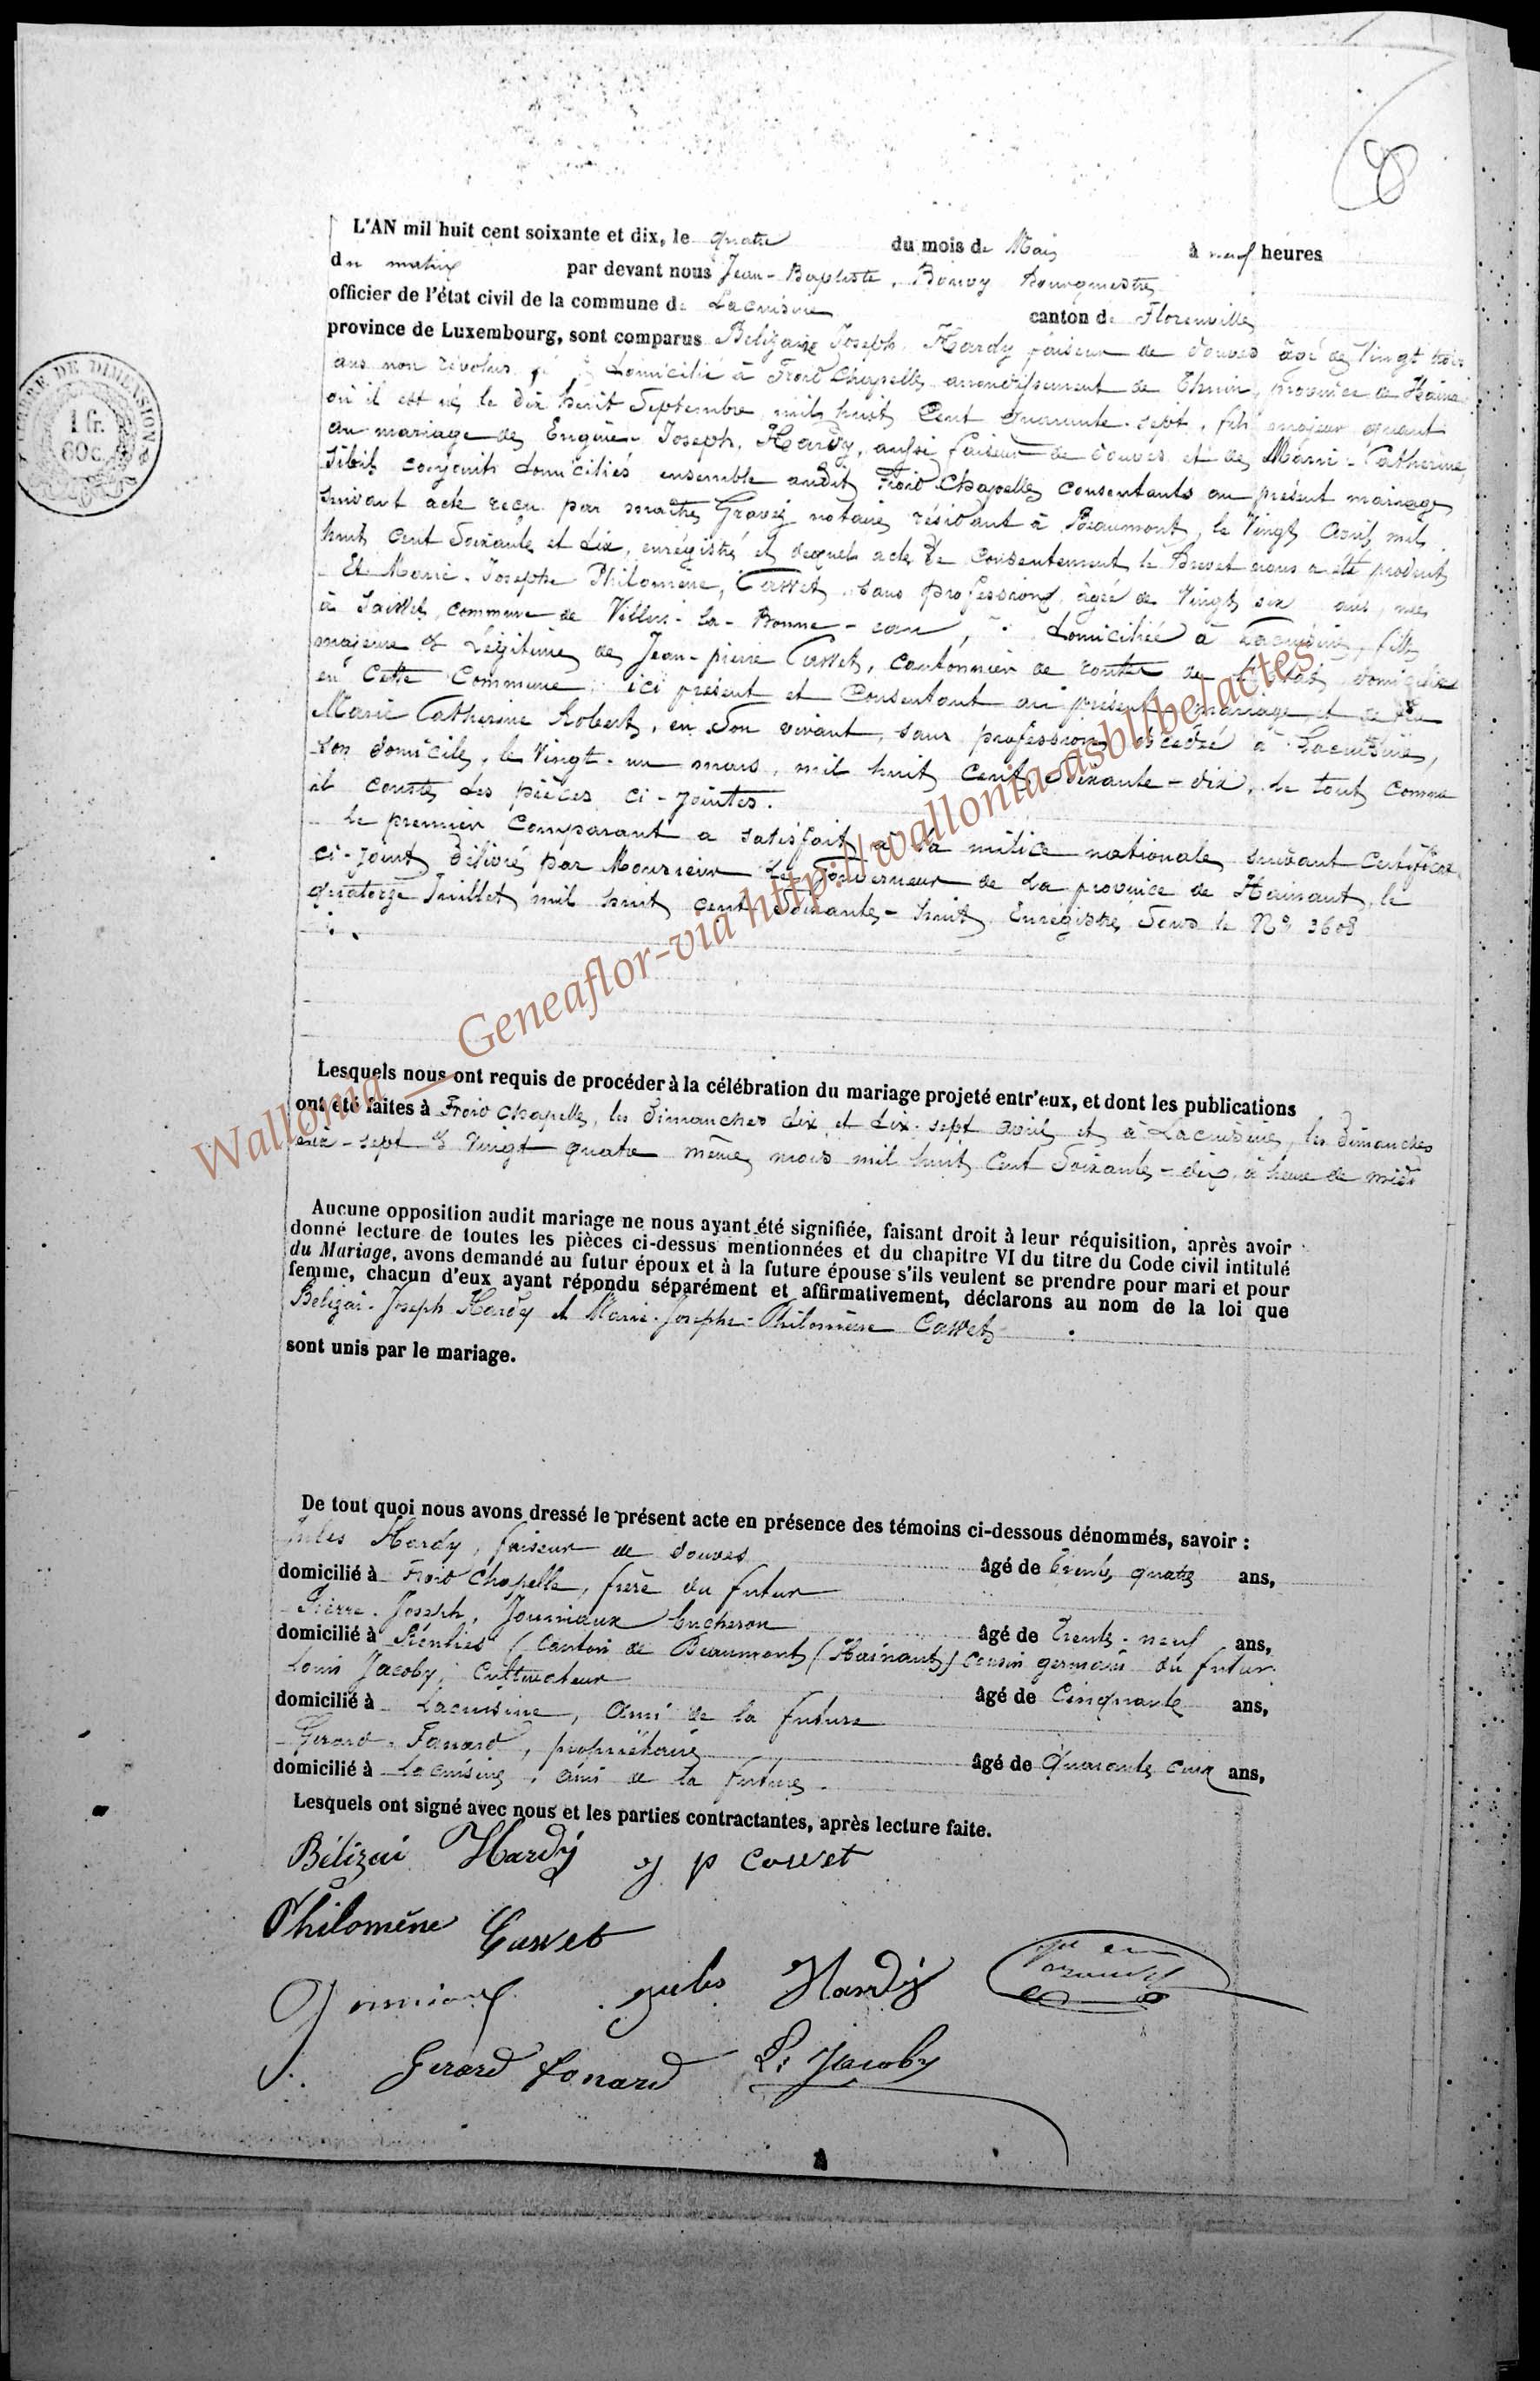 8
TIMBRE DE DIMENSION
1 fr.
60 c.
L'AN mil huit cent soixante et dix, le quatre du mois de Mai, à neuf heures
du matin par devant nous Jean-Baptiste, Bourgumestre
officier de l'état civil de la commune de Lacuisine canton de Florenville
province de Luxembourg, sont comparus Belizaire Joseph Hardy faiseur de douves âgé de vingt trois
ans non révolus, domicilié à Froid Chapelle, arrondissement de Thuin, province de Hainaut
où il est né le dix huit Septembre mil huit Cent quarante-sept, fils majeur quant
au mariage de Joseph, Hardy, aussi faiseur de douves et de Marie-Catherine
conjoints domiciliés ensemble audit Froid Chapelle, consentants au présent mariage
suivant acte reçu par maître Gravez notaire résidant à Beaumont, le Vingt Avril mil
huit Cent Soixante et dix, enrégistré et duquel acte de consentement le Brevet nous a été produit
Et Marie-Josephe Philomène, Casset, sans profession, âgée de Vingt six ans, née
à commune de Villers-la-Bonne-eau, domiciliée à Lacuisine, fille
majeure & Légitime de Jean-pierre Casset, cantonnier de routes de l'état, domicilié
en Cette Commune, ici présent et Consentant au présent mariage, et de feu
Marie Catherine Robert, en Son vivant, sans profession, décédée à Lacuisine,
son domicile, le Vingt-un mars, mil huit Cent, Soixante-dix, le tout Comme
il Conste des pièces ci-jointes.
Le premier Comparant a satisfait à la milice nationale, suivant certificat
ci-joint délivré par Monsieur Le Gouverneur de la province de Hainaut, le
quatorze Juillet mil huit cent Soixante-huit Enrégistré Sous le N° 3608
Wallonia — Geneaflor-via http://wallonia-asbl.be/actes
Lesquels nous ont requis de procéder à la célébration du mariage projeté entr'eux, et dont les publications
ont été faites à Froid Chapelle, les Dimanches dix et dix-sept avril et à Lacuisine, les dimanches
dix-sept & Vingt quatre même mois mil huit Cent Soixante-dix, à heure de midi
Aucune opposition audit mariage ne nous ayant été signifiée, faisant droit à leur réquisition, après avoir
donné lecture de toutes les pièces ci-dessus mentionnées et du chapitre VI du titre du Code civil intitulé
du Mariage, avons demandé au futur époux et à la future épouse s'ils veulent se prendre pour mari et pour
femme, chacun d'eux ayant répondu séparément et affirmativement, déclarons au nom de la loi que
Belizai-Joseph Hardy et Marie-Josephe-Philomène Casset
sont unis par le mariage.
De tout quoi nous avons dressé le présent acte en présence des témoins ci-dessous dénommés, savoir :
Jules Hardy, faiseur de douves âgé de trente quatre ans,
domicilié à Froid Chapelle, frère du futur
Pierre-Joseph, Jouniaux bucheron âgé de Trente-neuf ans,
domicilié à Renlies (Canton de Beaumont (Hainaut) Cousin germain du futur.
Louis Jacoby, Cultivateur âgé de Cinquante ans,
domicilié à Lacuisine, Ami de la future
Gerard-Fonard, propriétaire âgé de Quarante cinq ans,
domicilié à Lacuisine, ami de la future.
Lesquels ont signé avec nous et les parties contractantes, après lecture faite.
Bélizai Hardy J p Casset
Philomène Casset
Jouniaux Jules Hardy
Gerard Fonard L. Jacoby